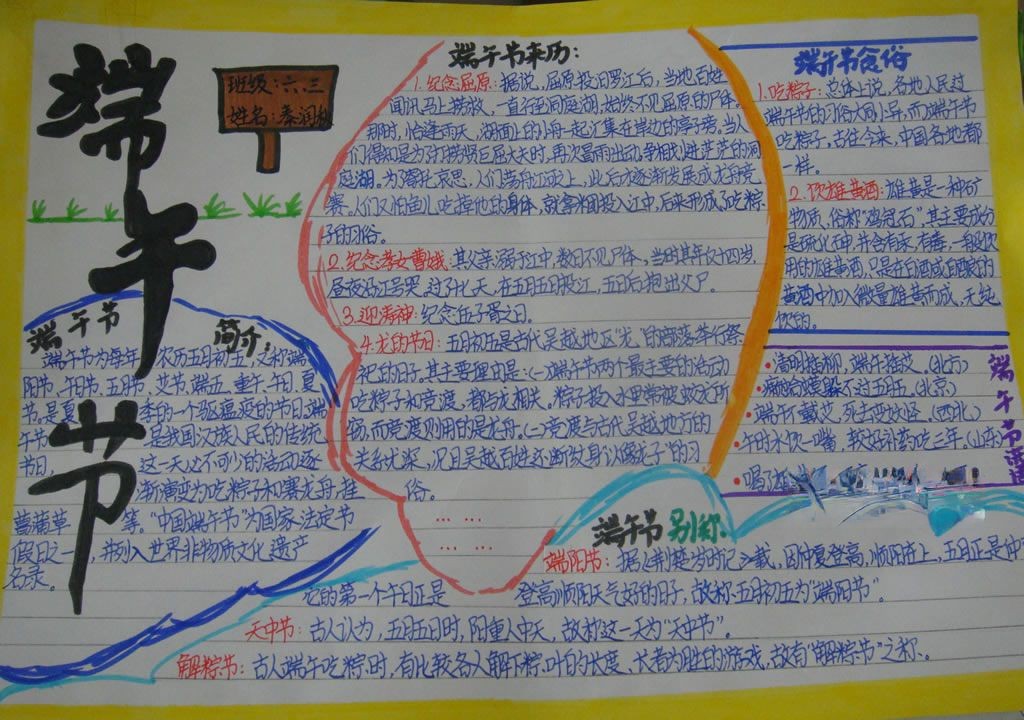 端午节
班级:六.三
姓名:秦润秋
端午节
简介:
端午节为每年 农历五月初五,又称端
阳节,午日节,五月节,艾节,端五,重午,午日,夏
节,是夏 季的一个驱瘟疫的节日,端
午节 是我国汉族人民的传统
节日, 这一天必不可少的活动逐
渐演变为吃粽子和赛龙舟,挂
菖蒲草 等。“中国端午节”为国家法定节
假日之一,并列入世界非物质文化遗产
名录。
端午节来历:
1.纪念屈原:据说,屈原投汨罗江后,当地百姓
闻讯马上捞救,一直行至洞庭湖,始终不见屈原的尸体。
那时,恰逢雨天,湖面上的小舟一起汇集在岸边的亭子旁。当人
们得知是为了打捞贤臣屈大夫时,再次冒雨出动,争相划进茫茫的洞
庭湖。为了寄托哀思,人们荡舟江河上,此后才逐渐发展成龙舟竞
赛。人们又怕鱼儿吃掉他的身体,就拿米团投入江中,后来形成了吃粽
子的习俗。
2.纪念孝女曹娥:其父亲溺于江中,数日不见尸体,当时其年仅十四岁,
昼夜沿江号哭,过了十七天,在五月五日投江,五日后抱出父尸。
3.迎涛神:纪念伍子胥之日。
4.龙的节日:五月初五是古代吴越地区“龙”的部落举行祭
祀的日子。其主要理由是:(一)端午节两个最主要的活动
吃粽子和竞渡,都与龙相关。粽子投入水里常被蛟龙所
窃,而竞渡则用的是龙舟。(二)竞渡与古代吴越地方的
关系尤深,况且吴越百姓还断发纹身“以像龙子”的习
俗。
... ...
... ...
端午节食俗
1.吃粽子:总体上说,各地人民过
端午节的习俗大同小异,而端午节
吃粽子,古往今来,中国各地都
一样。
2.饮雄黄酒:雄黄是一种矿
物质,俗称“鸡冠石”,其主要成分
是硫化砷,并含有汞,有毒,一般饮
用的雄黄酒,只是在白酒或自酿的
黄酒中加入微量雄黄而成,无纯
饮的。
端午节谚语
•清明插柳,端午插艾。(北京)
•癞蛤蟆躲不过五月五。(北京)
•端午不戴艾,死去变妖怪。(西北)
•午时水饮一嘴,较好补药吃三年。(山东)
•喝
端午节别称:
端阳节:据《荆楚岁时记》载,因仲夏登高,顺阳在上,五月正是仲夏,
它的第一个午日正是 登高顺阳天气好的日子,故称五月初五为“端阳节”。
天中节:古人认为,五月五日时,阳重人中天,故称这一天为“天中节”。
解粽节:古人端午吃粽时,有比较各人解下粽叶的长度、长者为胜的游戏,故有“解粽节”之称。